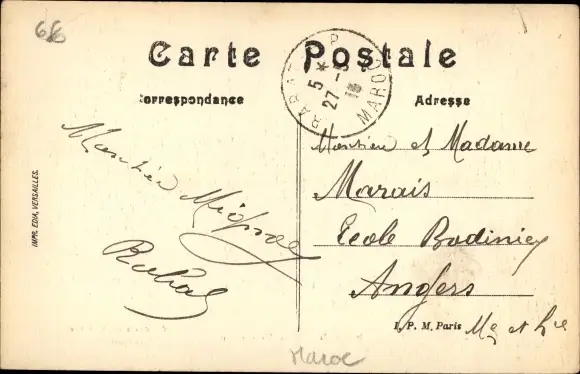 66
Carte Postale
Correspondance
Adresse
RABAT P
5 *
27 - 3
13
MAROC
Monsieur et Madame
Marais
Ecole Bodinier
Angers
Me et Lre
Monsieur
Rabat
IMPR. EDIA, VERSAILLES.
I. P. M. Paris
Maroc